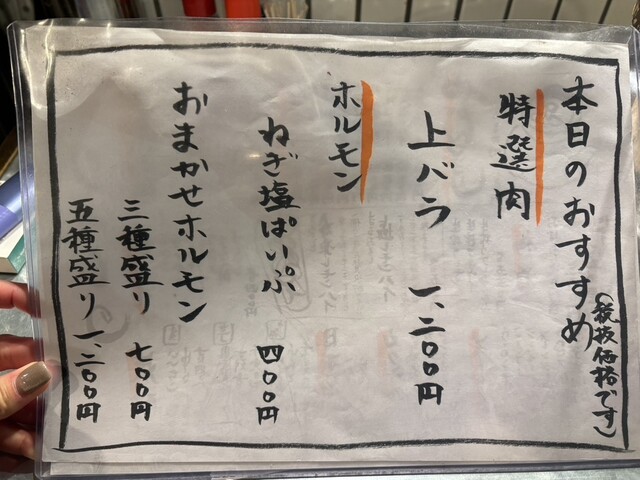 本日のおすすめ
(税抜価格です)
特選肉
上バラ 一、二〇〇円
ホルモン
ねぎ塩ぱいぷ 四〇〇円
おまかせホルモン
三種盛り 七〇〇円
五種盛り 一、二〇〇円